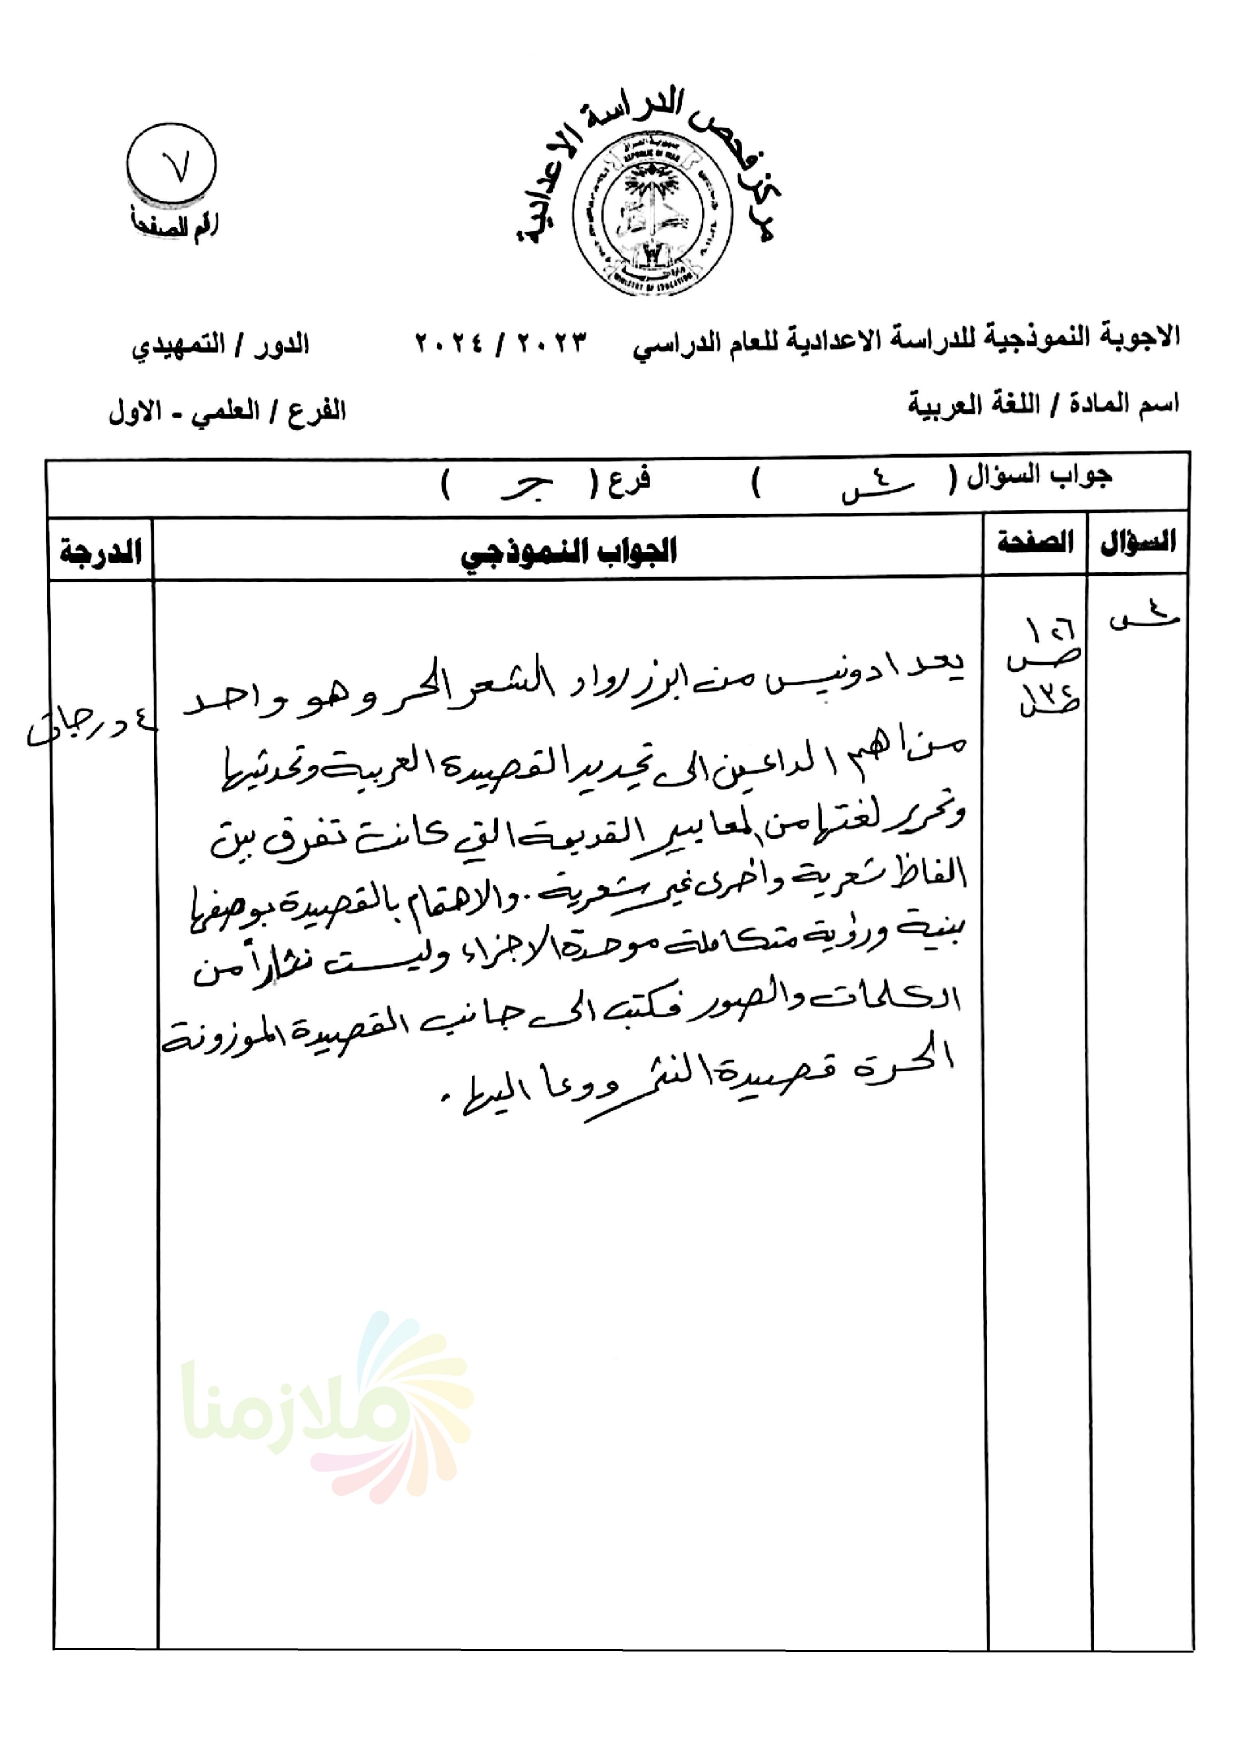 مركز فحص الدراسة الاعدادية
جمهورية العراق
REPUBLIC OF IRAQ
وزارة التربية
MINISTRY OF EDUCATION
٧
رقم الصفحة
الاجوبة النموذجية للدراسة الاعدادية للعام الدراسي ٢٠٢٣ / ٢٠٢٤ الدور / التمهيدي
اسم المادة / اللغة العربية الفرع / العلمي - الاول
جواب السؤال ( س٤ ) فرع ( جـ )
السؤال الصفحة الجواب النموذجي الدرجة
س٤
ص
يعد ادونيس من ابرز رواد الشعر الحر وهو واحد
٤ درجات
من اهم الداعين الى تجديد القصيدة العربية وتحديثها
وتحرير لغتها من المعايير القديمة التي كانت تفرق بين
الفاظ شعرية واخرى غير شعرية . والاهتمام بالقصيدة بوصفها
بنية ورؤية متكاملة موحدة الاجزاء وليست نثاراً من
الكلمات والصور فكتب الى جانب القصيدة الموزونة
الحرة قصيدة النثر ودعا اليها .
ملازمنا